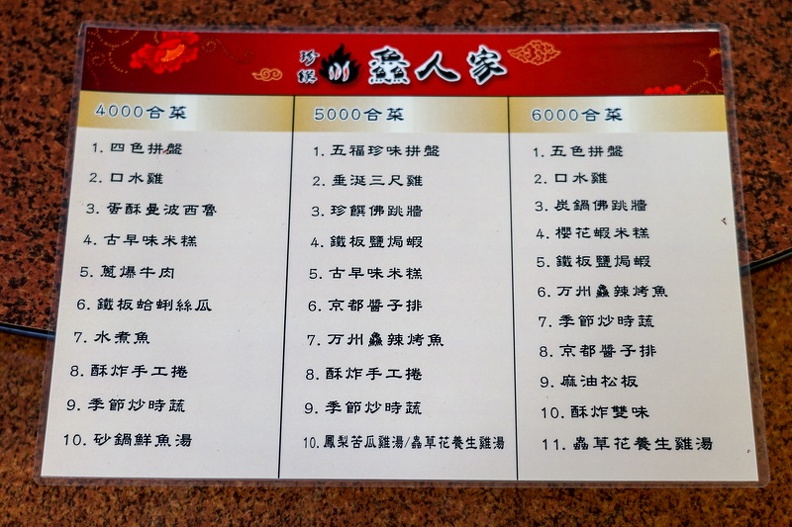 珍饌 鱻人家
4000合菜
1. 四色拼盤
2. 口水雞
3. 蛋酥曼波西魯
4. 古早味米糕
5. 蔥爆牛肉
6. 鐵板蛤蜊絲瓜
7. 水煮魚
8. 酥炸手工捲
9. 季節炒時蔬
10. 砂鍋鮮魚湯
5000合菜
1. 五福珍味拼盤
2. 垂涎三尺雞
3. 珍饌佛跳牆
4. 鐵板鹽焗蝦
5. 古早味米糕
6. 京都醬子排
7. 万州鱻辣烤魚
8. 酥炸手工捲
9. 季節炒時蔬
10. 鳳梨苦瓜雞湯/蟲草花養生雞湯
6000合菜
1. 五色拼盤
2. 口水雞
3. 炭鍋佛跳牆
4. 櫻花蝦米糕
5. 鐵板鹽焗蝦
6. 万州鱻辣烤魚
7. 季節炒時蔬
8. 京都醬子排
9. 麻油松板
10. 酥炸雙味
11. 蟲草花養生雞湯